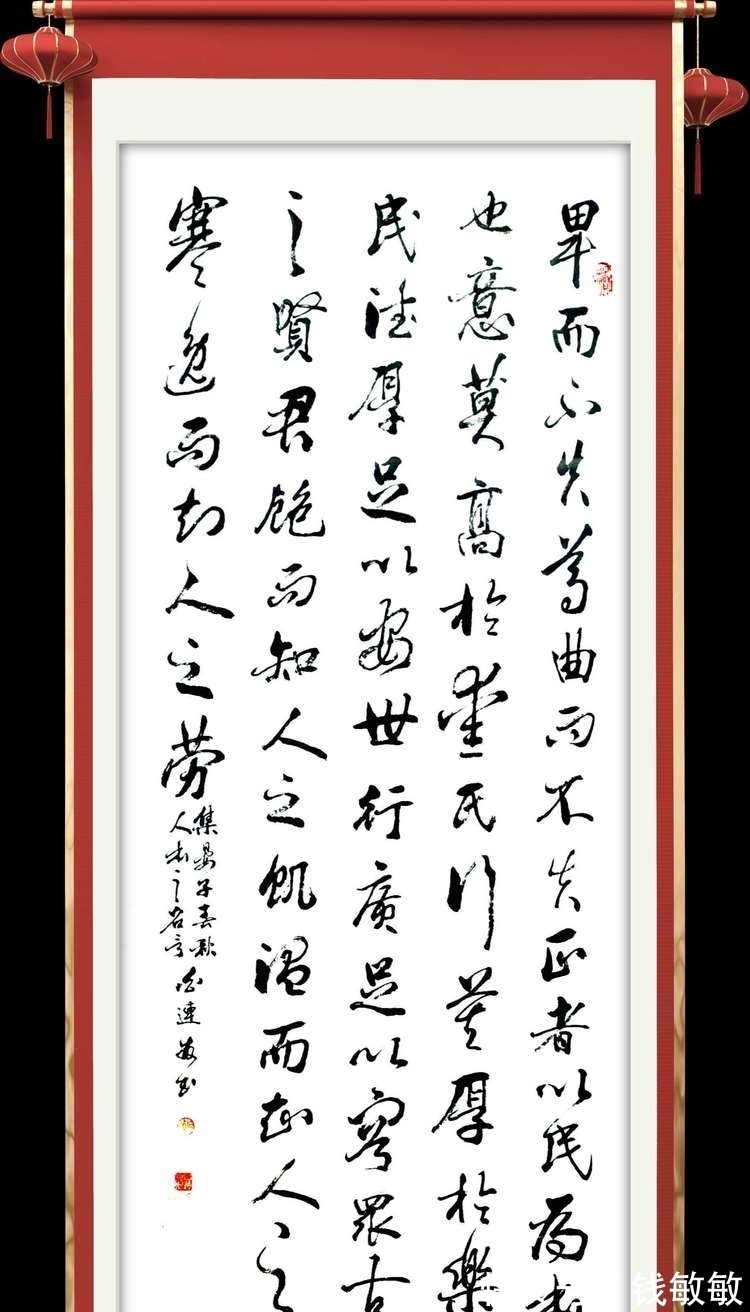 卑而不失尊曲而不失正者以民为本
也意莫高於爱民行莫厚於樂
民德厚足以安世行廣足以容眾古
之賢君飽而知人之飢温而知人之
寒逸而知人之劳
集晏子春秋
人
连敏书
钱敏敏